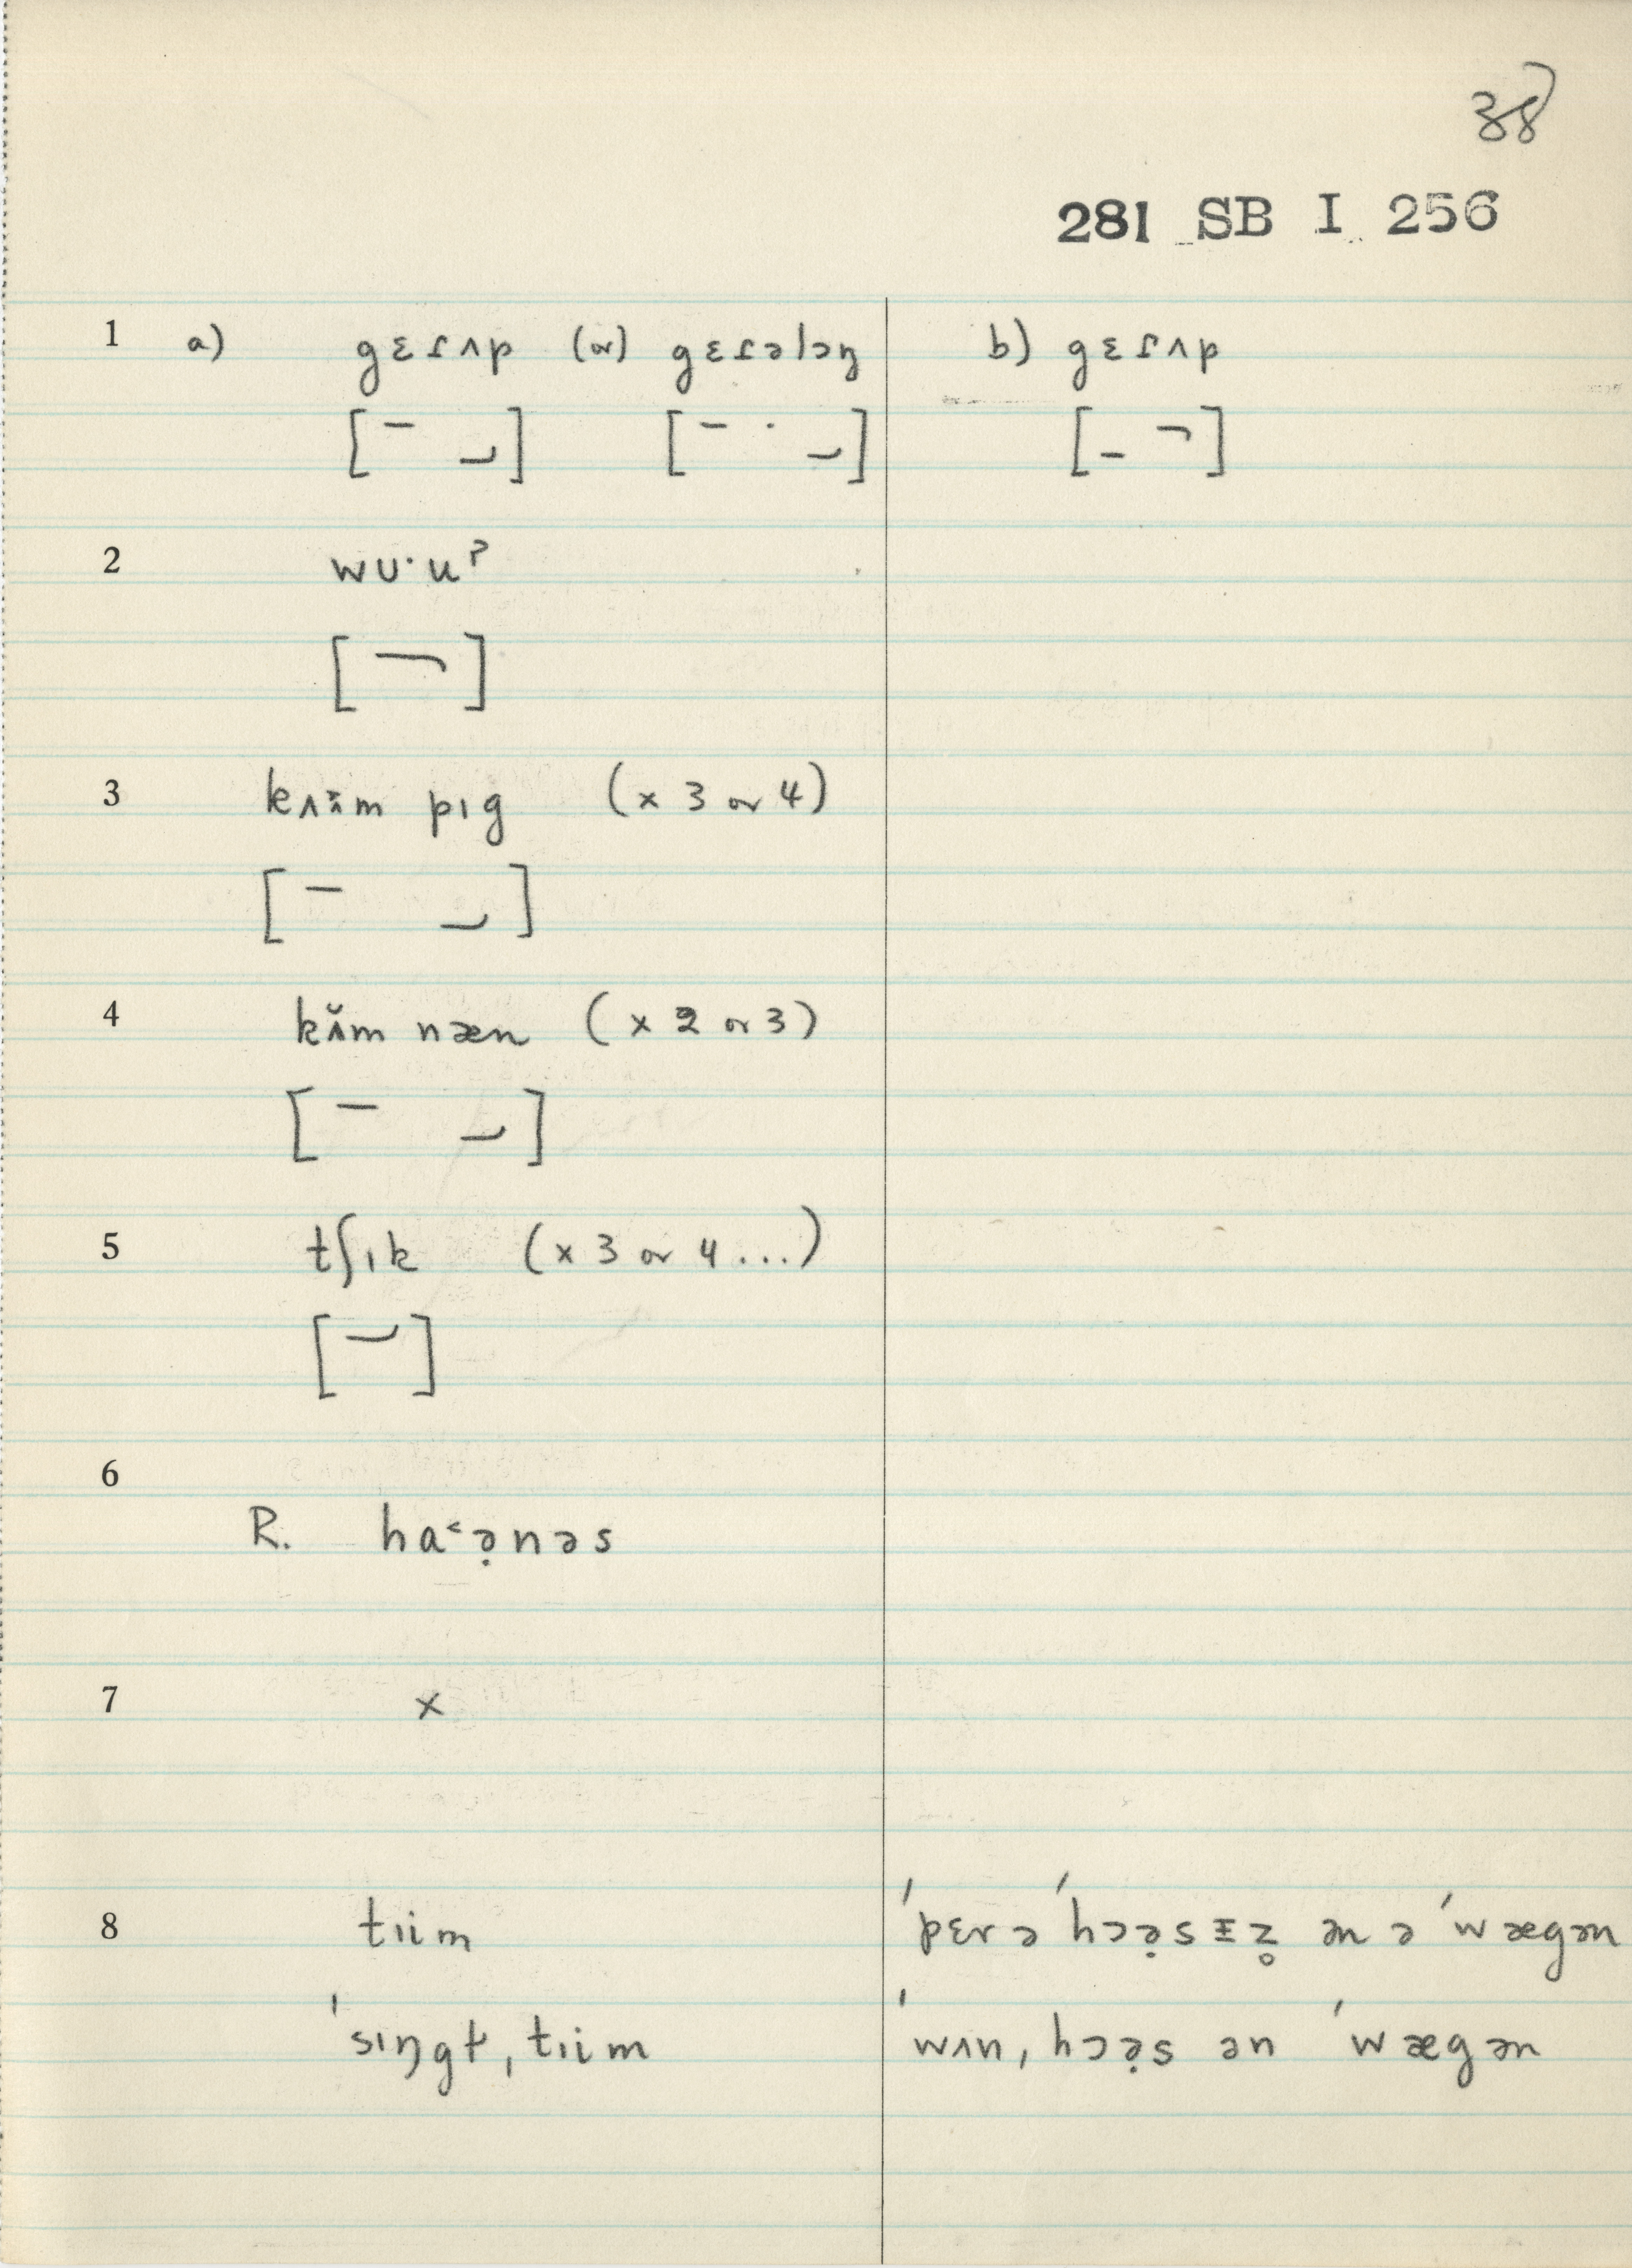 38
281 SB I 256
1 a) gɛɾʌp (or) gɛɾəlɔŋ b) gɛɾʌp
[ ] [ ] [ ]
2 wʊ·uˀ
[ ]
3 kʌʌ̃m pɪg (x 3 or 4)
[ ]
4 kʌ̆m næn (x 2 or 3)
[ ]
5 tʃɪk (x 3 or 4 ...)
[ ]
6
R. ha˂ə̣nəs
7 x
8 tɪim ˈpɛr ə ˈhɔə̣sɪ̵z̥ ən ə ˈwægən
ˈsɪŋgɫ, tɪim ˈwʌn, hɔə̣s ən ˈwægən